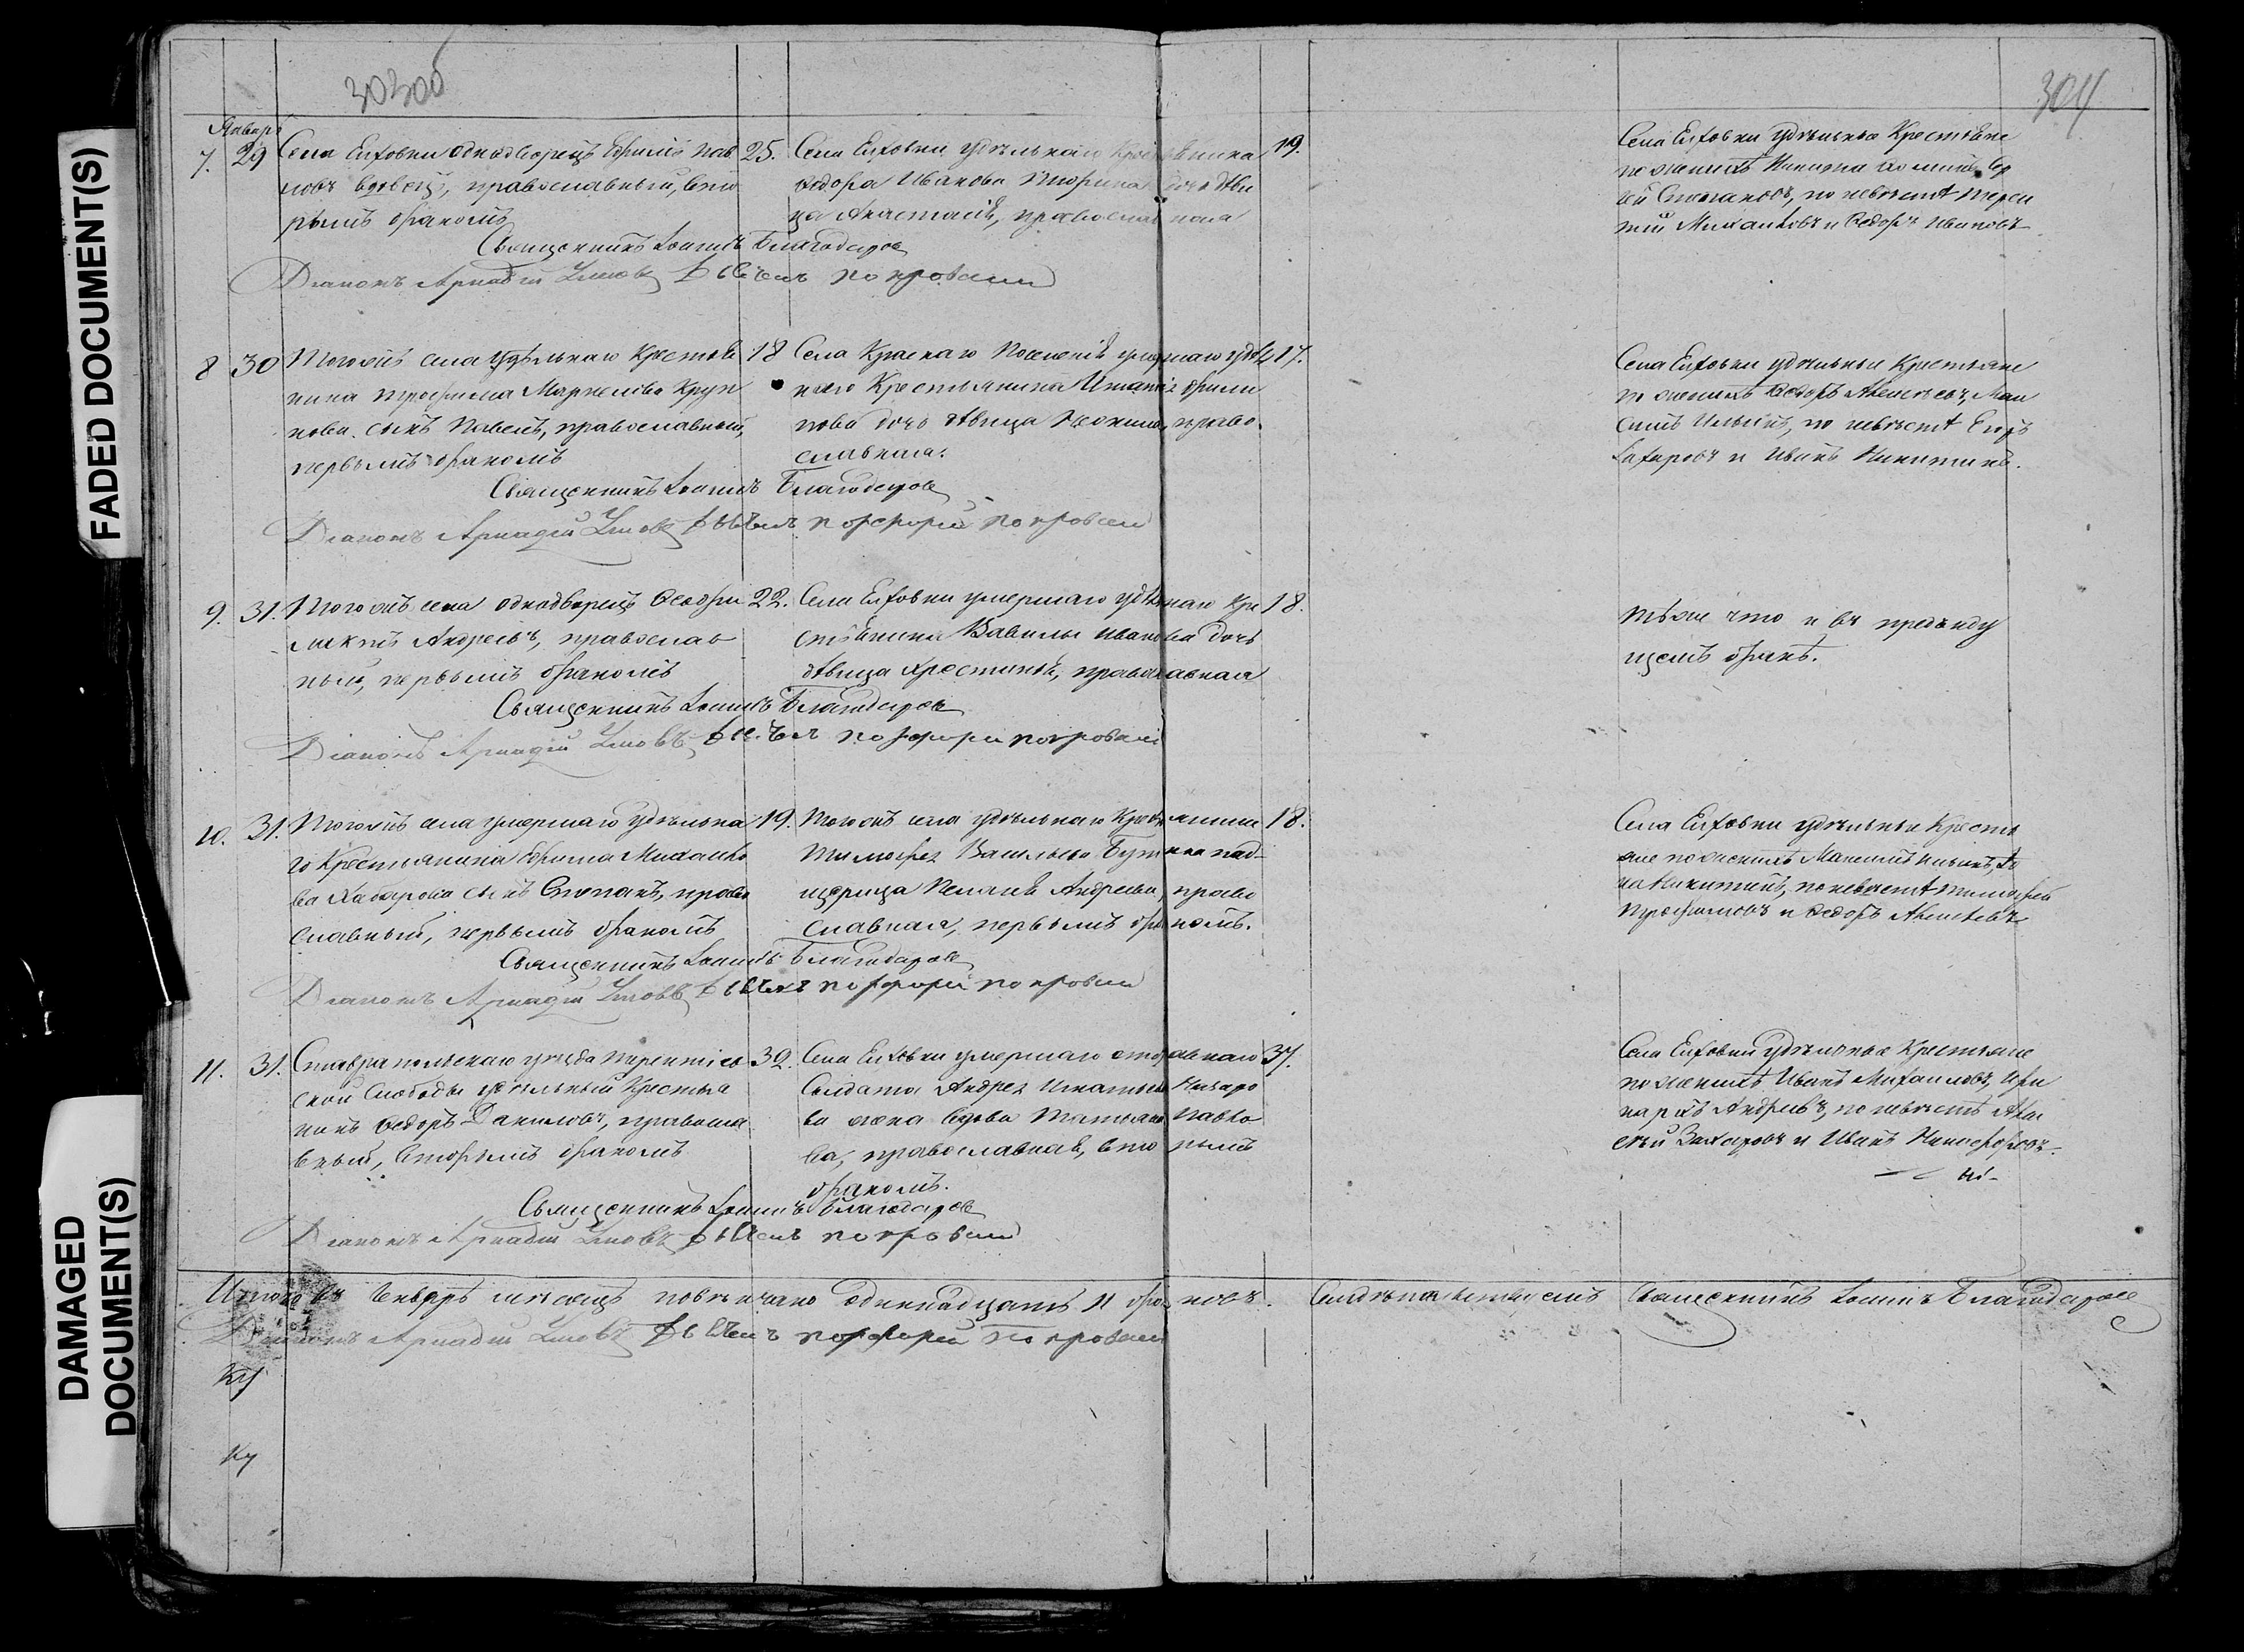 FADED DOCUMENT(S)
DAMAGED
DOCUMENT(S)
303об
304
Январь
7. 29 Села Елховки однодворецъ Ефимъ Пав
ловъ вдовецъ, православный, вто
рымъ бракомъ
25.
Села Елховки удѣльнаго крестьянина
Ѳедора Иванова дочь дѣви
ца Анастасія, православная
19.
Села Елховки удѣльные крестьяне
по женихѣ
Степановъ, по невѣстѣ Терен
тій Михайловъ и Ѳедоръ Ивановъ
Священникъ Іоаннъ Благодаровъ
Діаконъ Аркадій Умовъ Покровскій
8 30 Тогоже села удѣльнаго крестьян
нина Трофима Маркелова Круп
нова сынъ Павелъ, православный,
первымъ бракомъ
18
Села Краснаго Поселенія умершаго удѣль
наго крестьянина Игнатія Филип
пова дочь дѣвица право
славная.
17.
Села Елховки удѣльные крестьяне
по женихѣ Ѳедоръ Алексѣевъ, Мак
симъ Ильинъ, по невѣстѣ Егоръ
Захаровъ и Иванъ Никитинъ.
Священникъ Іоаннъ Благодаровъ
Діаконъ Аркадій Умовъ Порфирій Покровскій
9. 31. Тогожъ села однодворецъ Ѳеофи
лактъ Андреевъ, православ
ный, первымъ бракомъ
22.
Села Елховки умершаго удѣльнаго кре
стьянина Вавилы Иванова дочь
дѣвица Христинія, православная
18.
Тѣже что и въ предъиду
щемъ бракѣ.
Священникъ Іоаннъ Благодаровъ
Діаконъ Аркадій Умовъ Порфирій Покровскій
10. 31. Тогожъ села умершаго удѣльна
го крестьянина Ефима Михайло
ва Хабарова сынъ Степанъ, право
славный, первымъ бракомъ
19.
Тогожъ села удѣльнаго крестьянина
Тимофея Васильева пад
щерица Пелагія Андреева, право
славная, первымъ бракомъ.
18.
Села Елховки удѣльные кресть
яне по женихѣ Максимъ Ильинъ,
Никитинъ, по невѣстѣ Тимофей
Трофимовъ и Ѳедоръ Алексѣевъ
Священникъ Іоаннъ Благодаровъ
Діаконъ Аркадій Умовъ Порфирій Покровскій
11. 31. Ставропольскаго уѣзда Терентіев
ской слободы удѣльный крестья
нинъ Ѳедоръ Даниловъ, правосла
вный, вторымъ бракомъ
39.
Села Елховки умершаго отставнаго
солдата Андрея Игнатьева Назаро
ва жена вдова Татьяна Павло
ва, православная, вторымъ
бракомъ.
37.
Села Елховки удѣльные крестьяне
по женихѣ Иванъ Михайловъ, Ири
нархъ Андреевъ, по невѣстѣ Але
ксѣй Захаровъ и Иванъ Никифоровъ
Священникъ Іоаннъ Благодаровъ
Діаконъ Аркадій Умовъ Покровскій
Итого въ Генварѣ мѣсяцѣ повѣнчано одиннадцать 11 браковъ.
Священникъ Іоаннъ Благодаровъ
Діаконъ Аркадій Умовъ Порфирій Покровскій